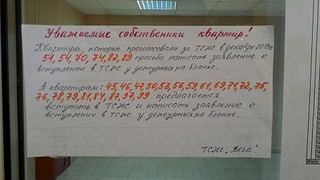 Уважаемые собственники квартир!
Квартиры, которые проголосовали за ТСЖ в декабре
51, 54, 70, 74, 82, 89 просьба написать заявление о
вступлении в ТСЖ у дежурных на бланке.
А квартирам: 45, 46, 47, 50, 58, 59, 61, 69, 71, 72, 75,
76, 78, 79, 81, 84, 87, 97, 99 предлагается
вступить в ТСЖ и написать заявление о
вступлении в ТСЖ у дежурных на бланке.
ТСЖ „Вега"